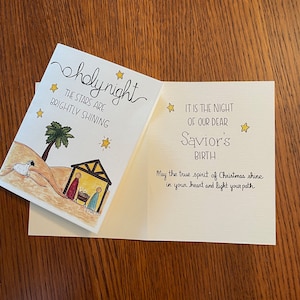 o holy night
THE STARS ARE
BRIGHTLY SHINING
IT IS THE NIGHT
OF OUR DEAR
Savior's
BIRTH
May the true spirit of Christmas shine
in your heart and light your path.